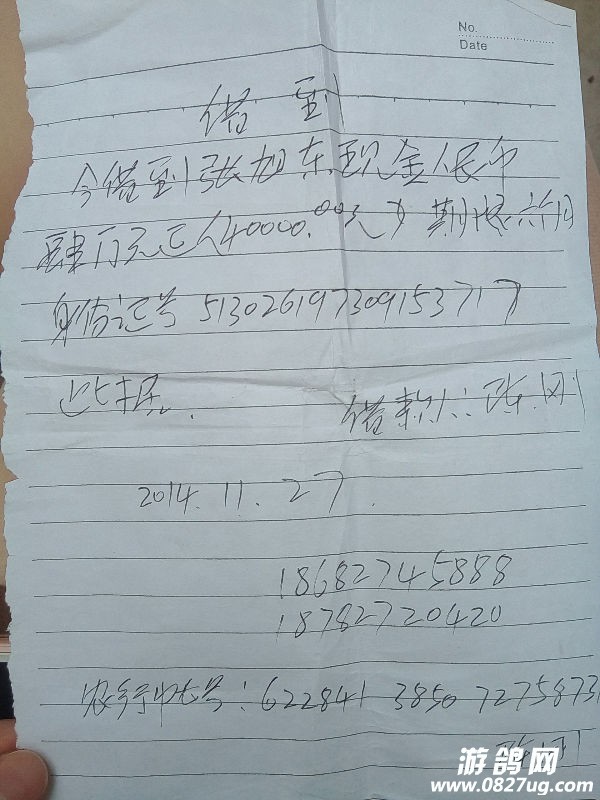 No.
Date
借到
今借到张旭东现金人民币
肆万元正(40000.00元)期限六个月
身份证号 513026197309153717
此据. 借款人:陈刚
2014.11.27.
18682745888
18782720420
农行卡号:622841 3850 7275873
陈刚
游鸽网
www.0827ug.com